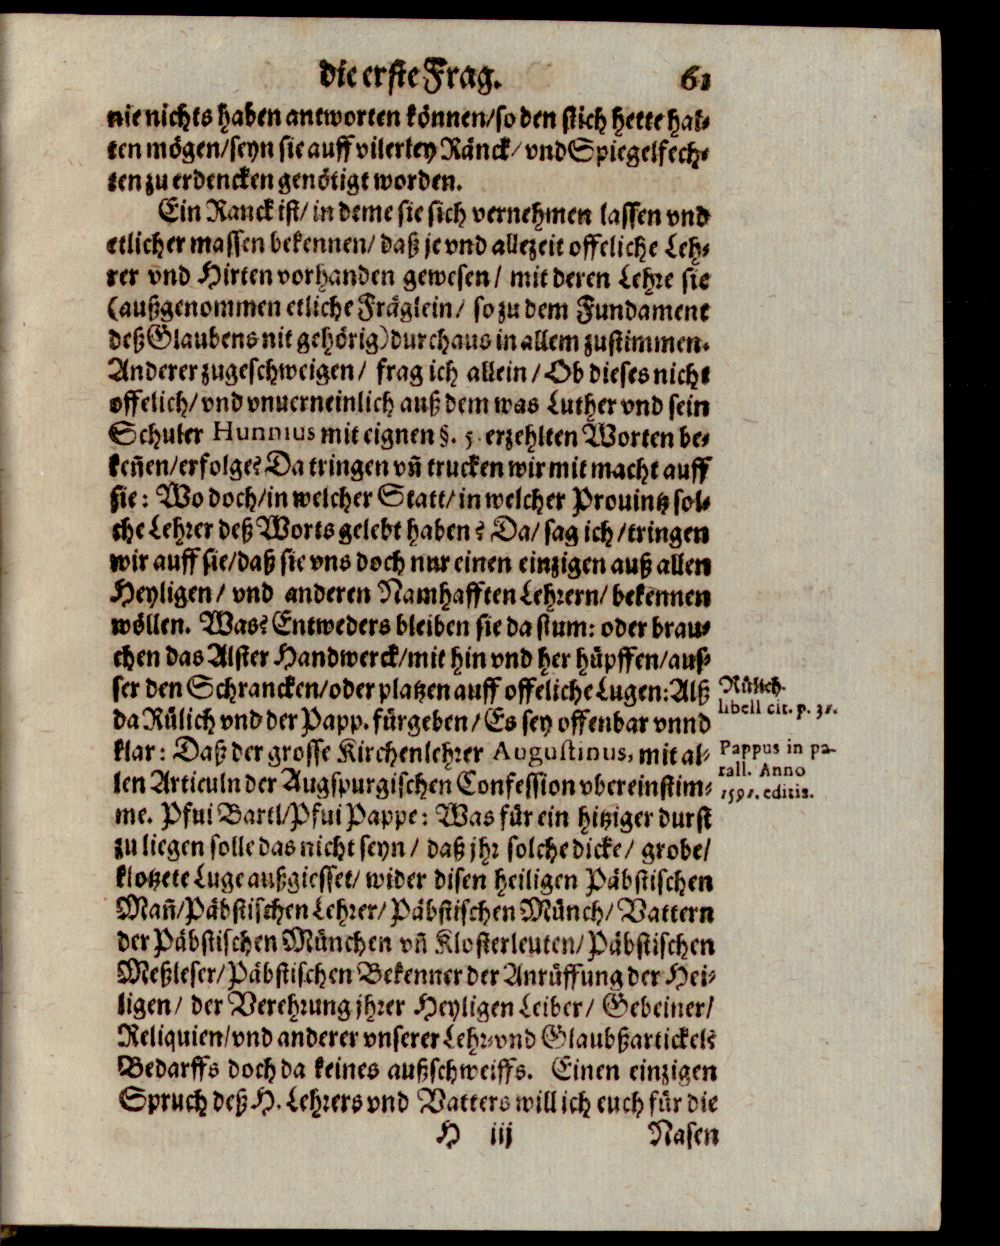 die erste Frag. 61
nie nichts haben antworten können/ so den stich hette hal-
ten mögen/ seyn sie auff vilerley Ränck/ vnd Spiegelfech-
ten zu erdencken genötigt worden.
Ein Ranck ist/ in deme sie sich vernehmen lassen vnd
etlicher massen bekennen/ daß je vnd allezeit offeliche Leh-
rer vnd Hirten vorhanden gewesen/ mit deren Lehre sie
(außgenommen etliche Fräglein/ so zu dem Fundament
deß Glaubens nit gehörig) durchaus in allem zustimmen.
Anderer zugeschweigen/ frag ich allein/ Ob dieses nicht
offelich/ vnd vnuerneinlich auß dem was Luther vnd sein
Schuler Hunnius mit eignen §. 5 erzehlten Worten be-
keñen/ erfolge? Da tringen vñ trucken wir mit macht auff
sie: Wo doch/ in welcher Statt/ in welcher Prouintz sol-
che Lehrer deß Worts gelebt haben? Da/ sag ich/ tringen
wir auff sie/ daß sie vns doch nur einen einzigen auß allen
Heyligen/ vnd anderen Namhafften Lehrern/ bekennen
wöllen. Was? Entweders bleiben sie da stum: oder brau-
chen das Alster Handwerck/ mit hin vnd her hüpffen/ aus-
ser den Schrancken/ oder platzen auff offeliche Lugen: Alß
da Rülich vnd der Papp. fürgeben/ Es sey offenbar vnnd
klar: Daß der grosse Kirchenlehrer Augustinus, mit al-
len Articuln der Augspurgischen Confession vbereinstim-
me. Pfui Bartl/ Pfui Pappe: Was für ein hitziger durst
zu liegen solle das nicht seyn/ daß jhr solche dicke/ grobe/
klotzete Luge außgiesset/ wider disen heiligen Päbstischen
Mañ/ Päbstischen Lehrer/ Päbstischen Münch/ Vattern
der Päbstischen München vñ Klosterleuten/ Päbstischen
Meßleser/ Päbstischen Bekenner der Anrüffung der Hei-
ligen/ der Verehrung jhrer Heyligen Leiber/ Gebeiner/
Reliquien/ vnd anderer vnserer Lehr- vnd Glaubßartickel?
Bedarffs doch da keines außschweiffs. Einen einzigen
Spruch deß H. Lehrers vnd Vatters will ich euch für die
H iij Nasen
Rülich.
libell cit. p. 31.
Pappus in pa-
rall. Anno
1591. editis.